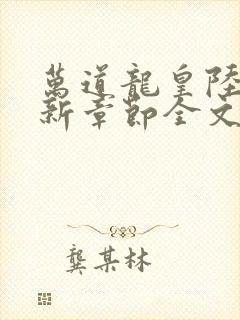 萬道龍皇陸
新章節全文
龔某林